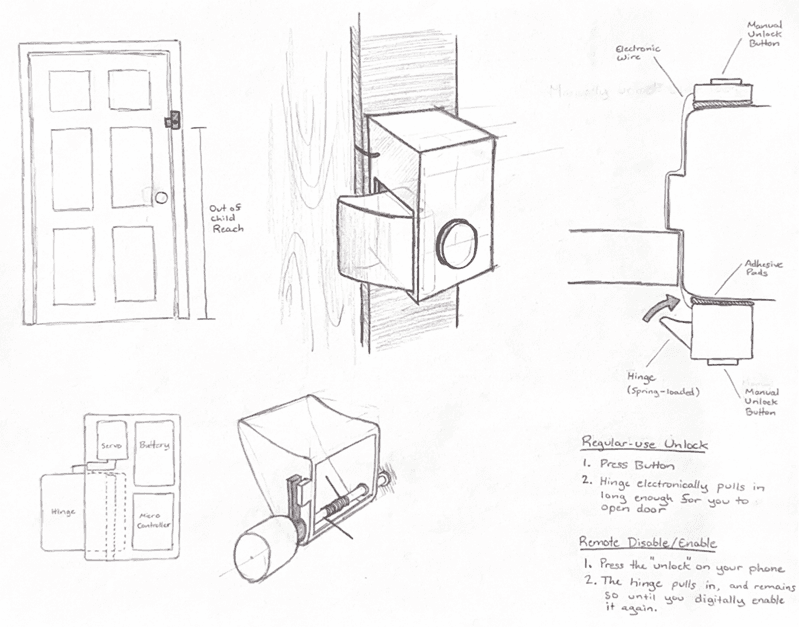 Out of
Child
Reach
Electronic
Wire
Manual
Unlock
Button
Adhesive
Pads
Hinge
(Spring-loaded)
Manual
Unlock
Button
Servo
Battery
Hinge
Micro
Controller
Regular-use Unlock
1. Press Button
2. Hinge electronically pulls in
long enough for you to
open door
Remote Disable/Enable
1. Press the "unlock" on your phone
2. The hinge pulls in, and remains
so until you digitally enable
it again.